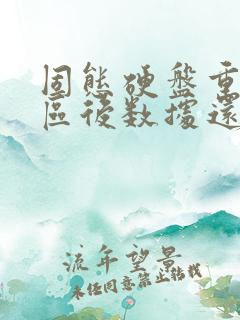 固態硬盤重
區後数據還
流年望景
未經同意禁止转载